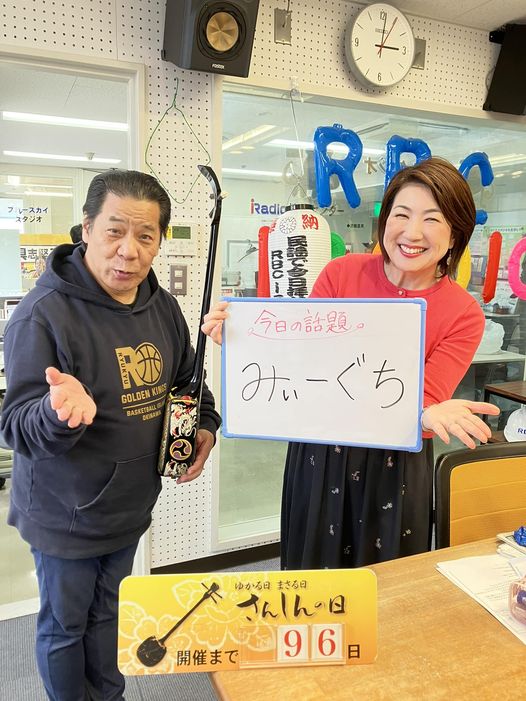 fostex
ブルースカイ
スタジオ
iRadio
RBC
奉納
民謡で今日拝
RBCi
RYUKYU
GOLDEN KINGS
BASKETBALL
OKINAWA
今日の話題。
みぃーぐち
ゆかる日 まさる日
さんしんの日
開催まで 96日